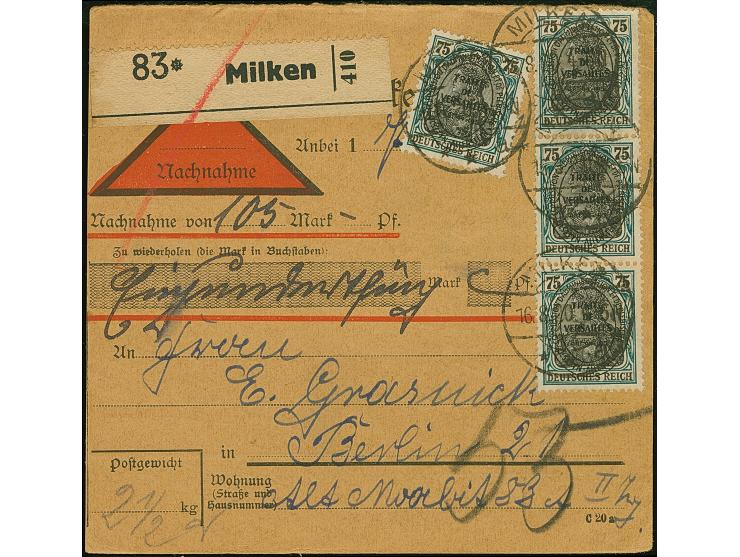 83* Milken 410
75 75
TRAITÉ
DE
VERSAILLES
DEUTSCHES REICH
75 75
TRAITÉ
DE
VERSAILLES
75 75
TRAITÉ
DE
VERSAILLES
DEUTSCHES REICH
75 75
TRAITÉ
DE
VERSAILLES
DEUTSCHES REICH
MILKEN
Anbei 1
Nachnahme
Nachnahme von 105 Mark — Pf.
Zu wiederholen (die Mark in Buchstaben):
Einhundertfünf Mark Pf.
An Herrn
E. Grasnick
in Berlin 21
Postgewicht
2 1/2 kg
Wohnung
(Straße und
Hausnummer)
Alt Moabit 83 A II
55
C 20a